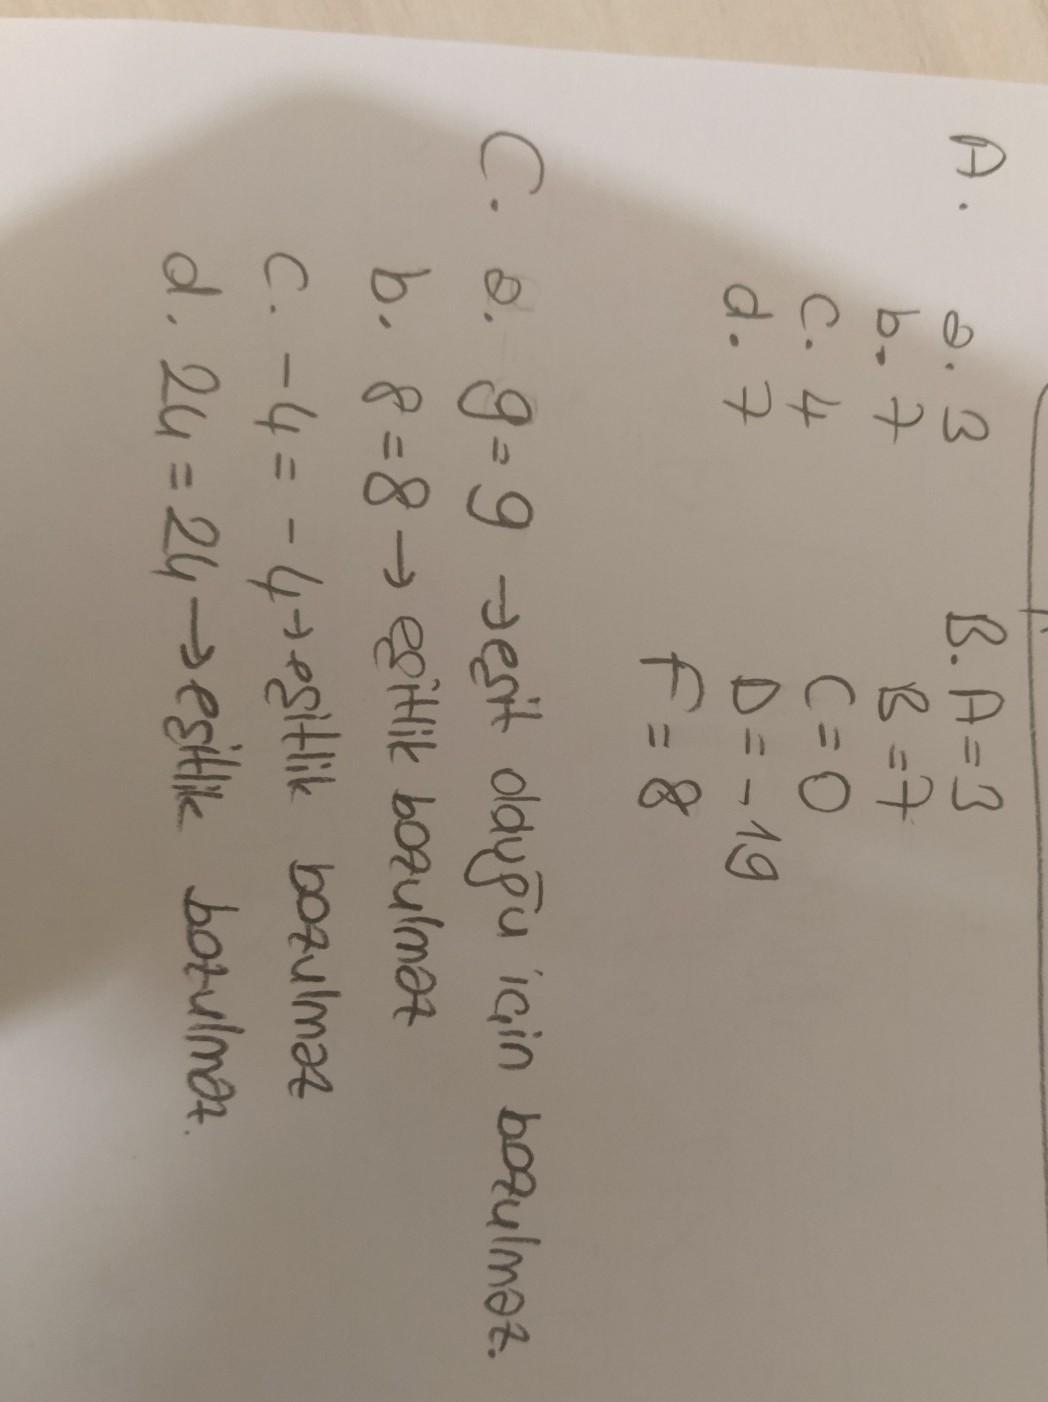 A. a. 3
b. 7
c. 4
d. 7
B. A = 3
B = 7
C = 0
D = -19
F = 8
C. a. 9 = 9 → eşit olduğu için bozulmaz.
b. 8 = 8 → eşitlik bozulmaz
c. -4 = -4 → eşitlik bozulmaz
d. 24 = 24 → eşitlik bozulmaz.